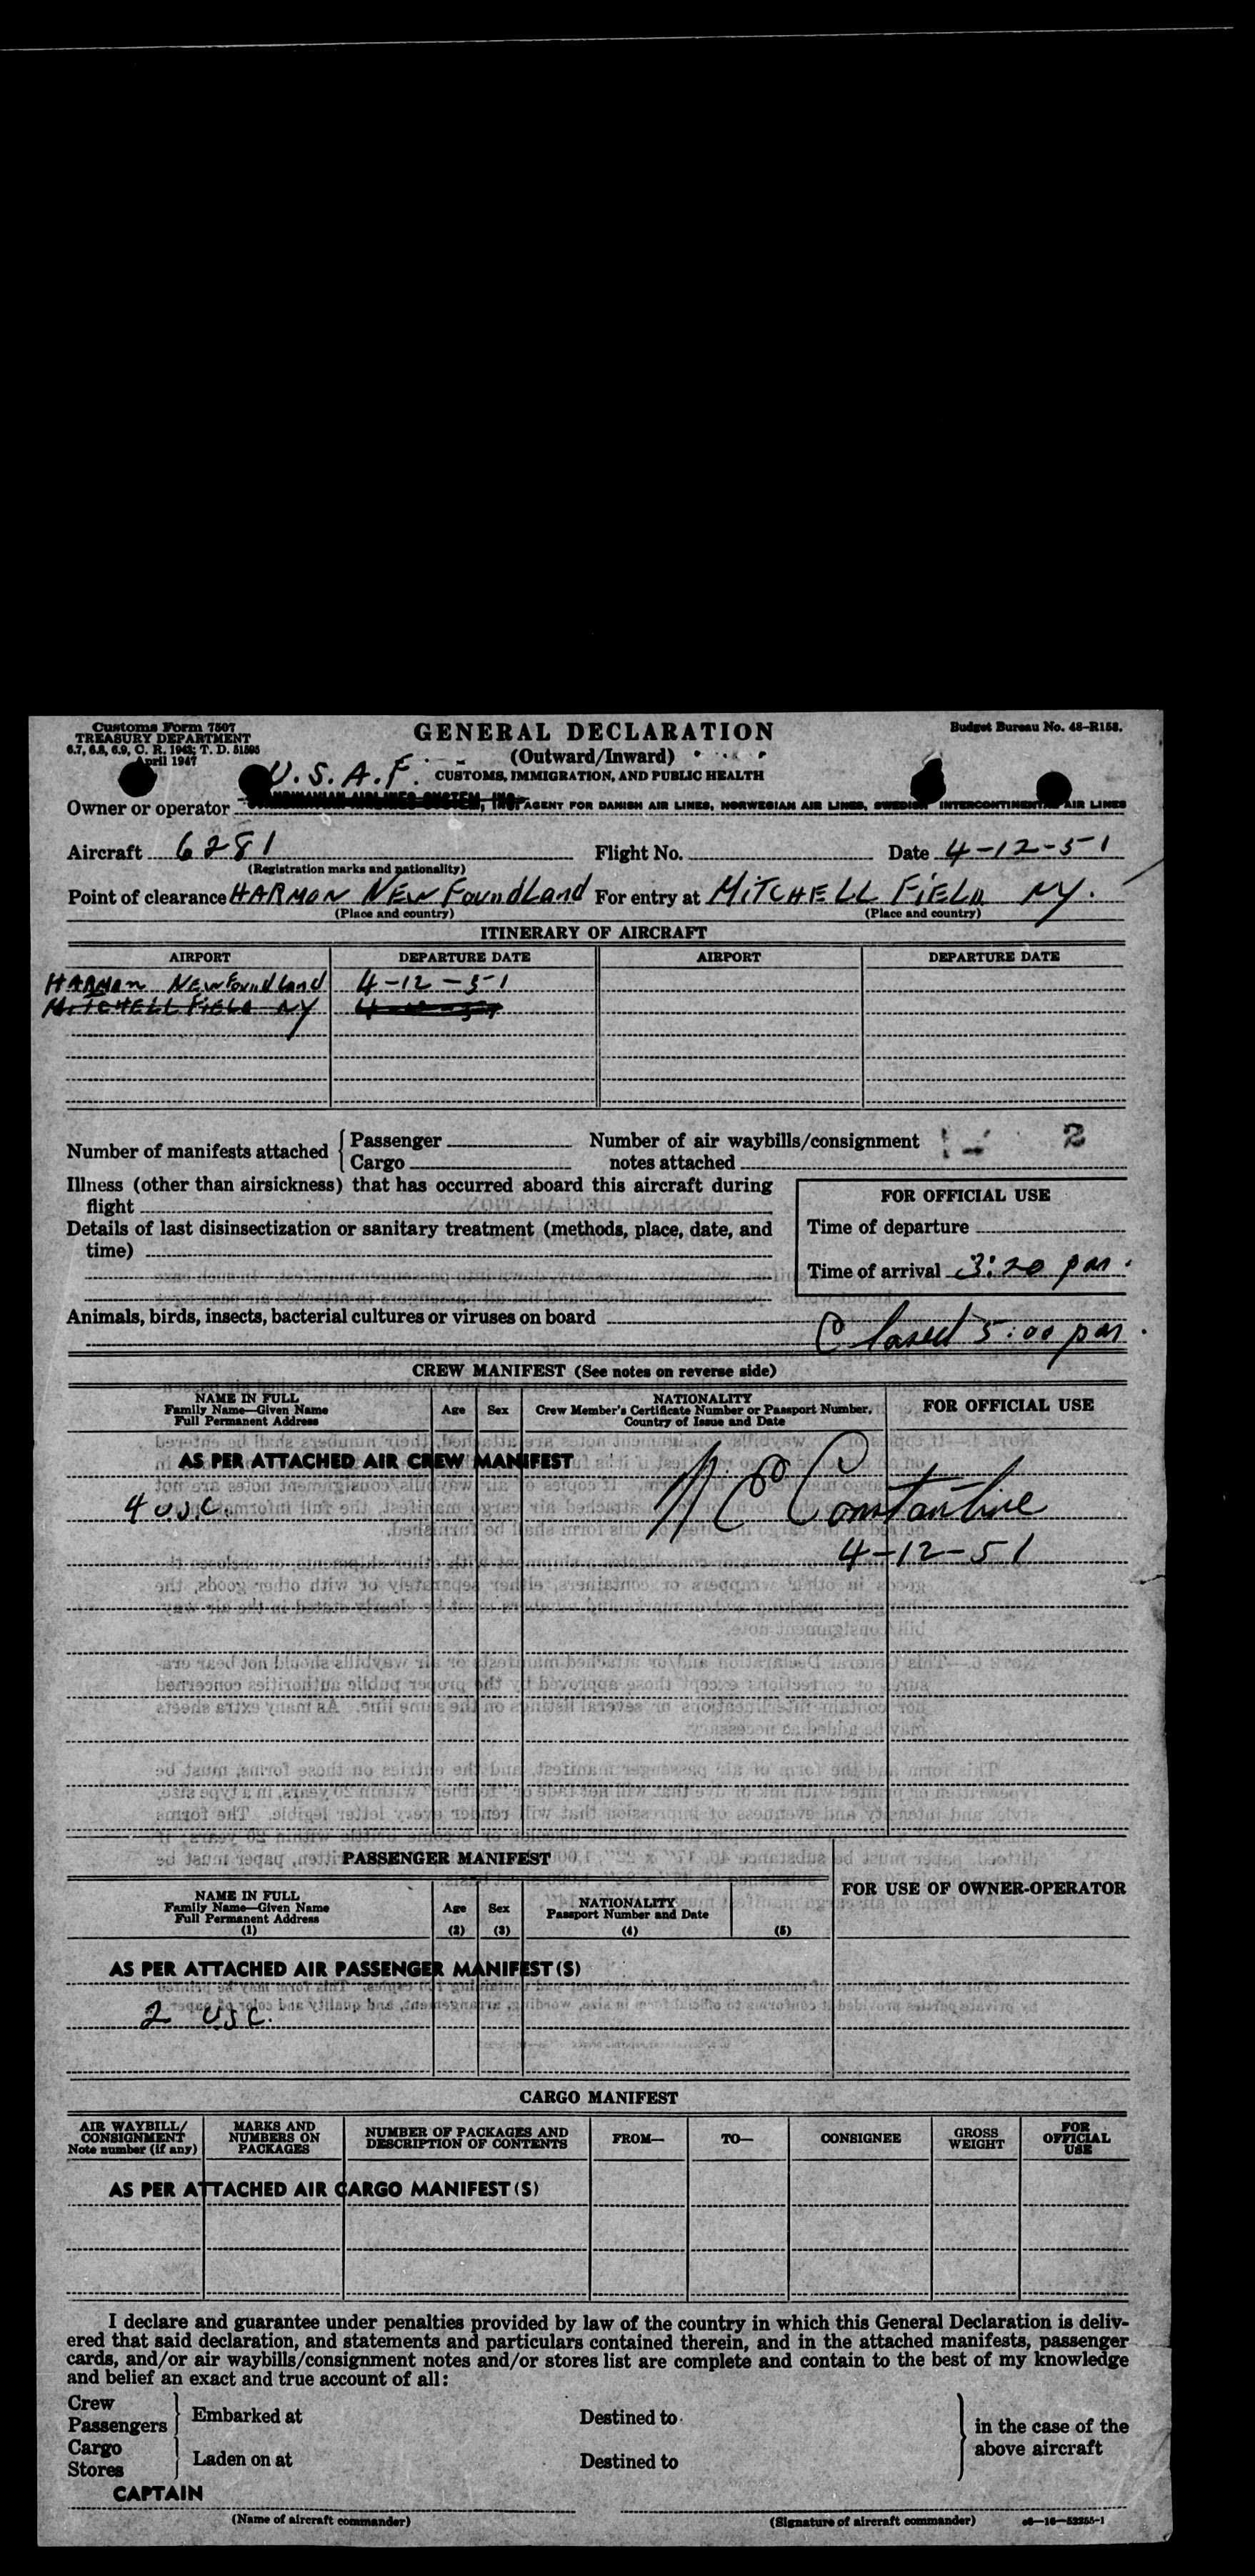 Customs Form 7507
TREASURY DEPARTMENT
6.7, 6.8, 6.9, C. R. 1943; T. D. 51595
April 1947
GENERAL DECLARATION
(Outward/Inward)
CUSTOMS, IMMIGRATION, AND PUBLIC HEALTH
Budget Bureau No. 48-R158.
U.S.A.F.
Owner or operator SCANDINAVIAN AIRLINES SYSTEM, INC. AGENT FOR DANISH AIR LINES, NORWEGIAN AIR LINES, SWEDISH INTERCONTINENTAL AIR LINES
Aircraft 6281 Flight No. Date 4-12-51
(Registration marks and nationality)
Point of clearance HARMON NEWFoundLand For entry at MITCHELL FIELD NY.
(Place and country) (Place and country)
ITINERARY OF AIRCRAFT
AIRPORT DEPARTURE DATE AIRPORT DEPARTURE DATE
HARMON NEWFoundLand 4-12-51
MITCHELL FIELD NY
Number of manifests attached { Passenger
Cargo
Number of air waybills/consignment
notes attached
2
Illness (other than airsickness) that has occurred aboard this aircraft during
flight
Details of last disinsectization or sanitary treatment (methods, place, date, and
time)
FOR OFFICIAL USE
Time of departure
Time of arrival 3:20 pm.
Animals, birds, insects, bacterial cultures or viruses on board
Closed 5:00 pm.
CREW MANIFEST (See notes on reverse side)
NAME IN FULL
Family Name—Given Name
Full Permanent Address
Age
Sex
NATIONALITY
Crew Member's Certificate Number or Passport Number,
Country of Issue and Date
FOR OFFICIAL USE
AS PER ATTACHED AIR CREW MANIFEST
4 U.S.C.
Constantine
4-12-51
PASSENGER MANIFEST
FOR USE OF OWNER-OPERATOR
NAME IN FULL
Family Name—Given Name
Full Permanent Address
(1)
Age
(2)
Sex
(3)
NATIONALITY
Passport Number and Date
(4)
(5)
AS PER ATTACHED AIR PASSENGER MANIFEST(S)
2 USC.
CARGO MANIFEST
AIR WAYBILL/
CONSIGNMENT
Note number (if any)
MARKS AND
NUMBERS ON
PACKAGES
NUMBER OF PACKAGES AND
DESCRIPTION OF CONTENTS
FROM—
TO—
CONSIGNEE
GROSS
WEIGHT
FOR
OFFICIAL
USE
AS PER ATTACHED AIR CARGO MANIFEST(S)
I declare and guarantee under penalties provided by law of the country in which this General Declaration is deliv-
ered that said declaration, and statements and particulars contained therein, and in the attached manifests, passenger
cards, and/or air waybills/consignment notes and/or stores list are complete and contain to the best of my knowledge
and belief an exact and true account of all:
Crew
Passengers } Embarked at Destined to
Cargo
Stores } Laden on at Destined to
} in the case of the
above aircraft
CAPTAIN
(Name of aircraft commander) (Signature of aircraft commander)